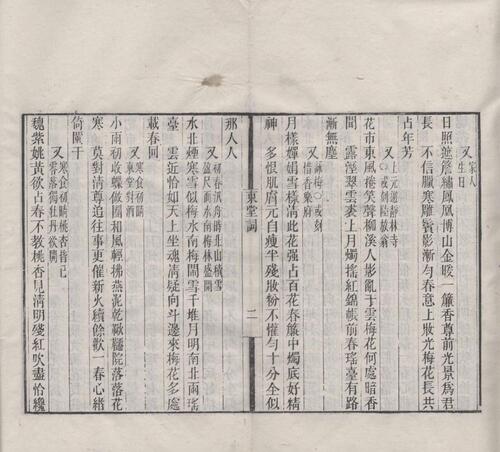 又 家人生日
日照遮簷繡鳳凰博山金暖一簾香尊前光景為君
長 不信臘寒雕鬢影漸勻春意上妝光梅花長共
占年芳
又 上元遊靜林寺
花市東風捲笑聲柳溪人影亂于雲梅花何處暗香
聞 露溼翠雲裘上月燭搖紅錦帳前春瑤臺有路
漸無塵
又 詠梅
月樣嬋娟雪樣清此花強占百花春簾中燭底好精
神 多恨肌膚元自瘦半殘妝粉不懽勻十分全似
那人人
又 初春泛舟時北山積雪盈尺而水南梅林盛開
水北煙寒雪似梅水南梅鬧雪千堆月明南北兩瑤
臺 雲近恰如天上坐魂清疑向斗邊來梅花多處
載春回
又 寒食初晴東堂對酒
小雨初收蝶做團和風輕拂燕泥乾鞦韆院落落花
寒 莫對清尊追往事更催新火續餘歡一春心緒
倚闌干
又 寒食初晴桃杏皆已零落獨牡丹欲開
魏紫姚黃欲占春不教桃杏見清明殘紅吹盡恰纔
東堂詞
二